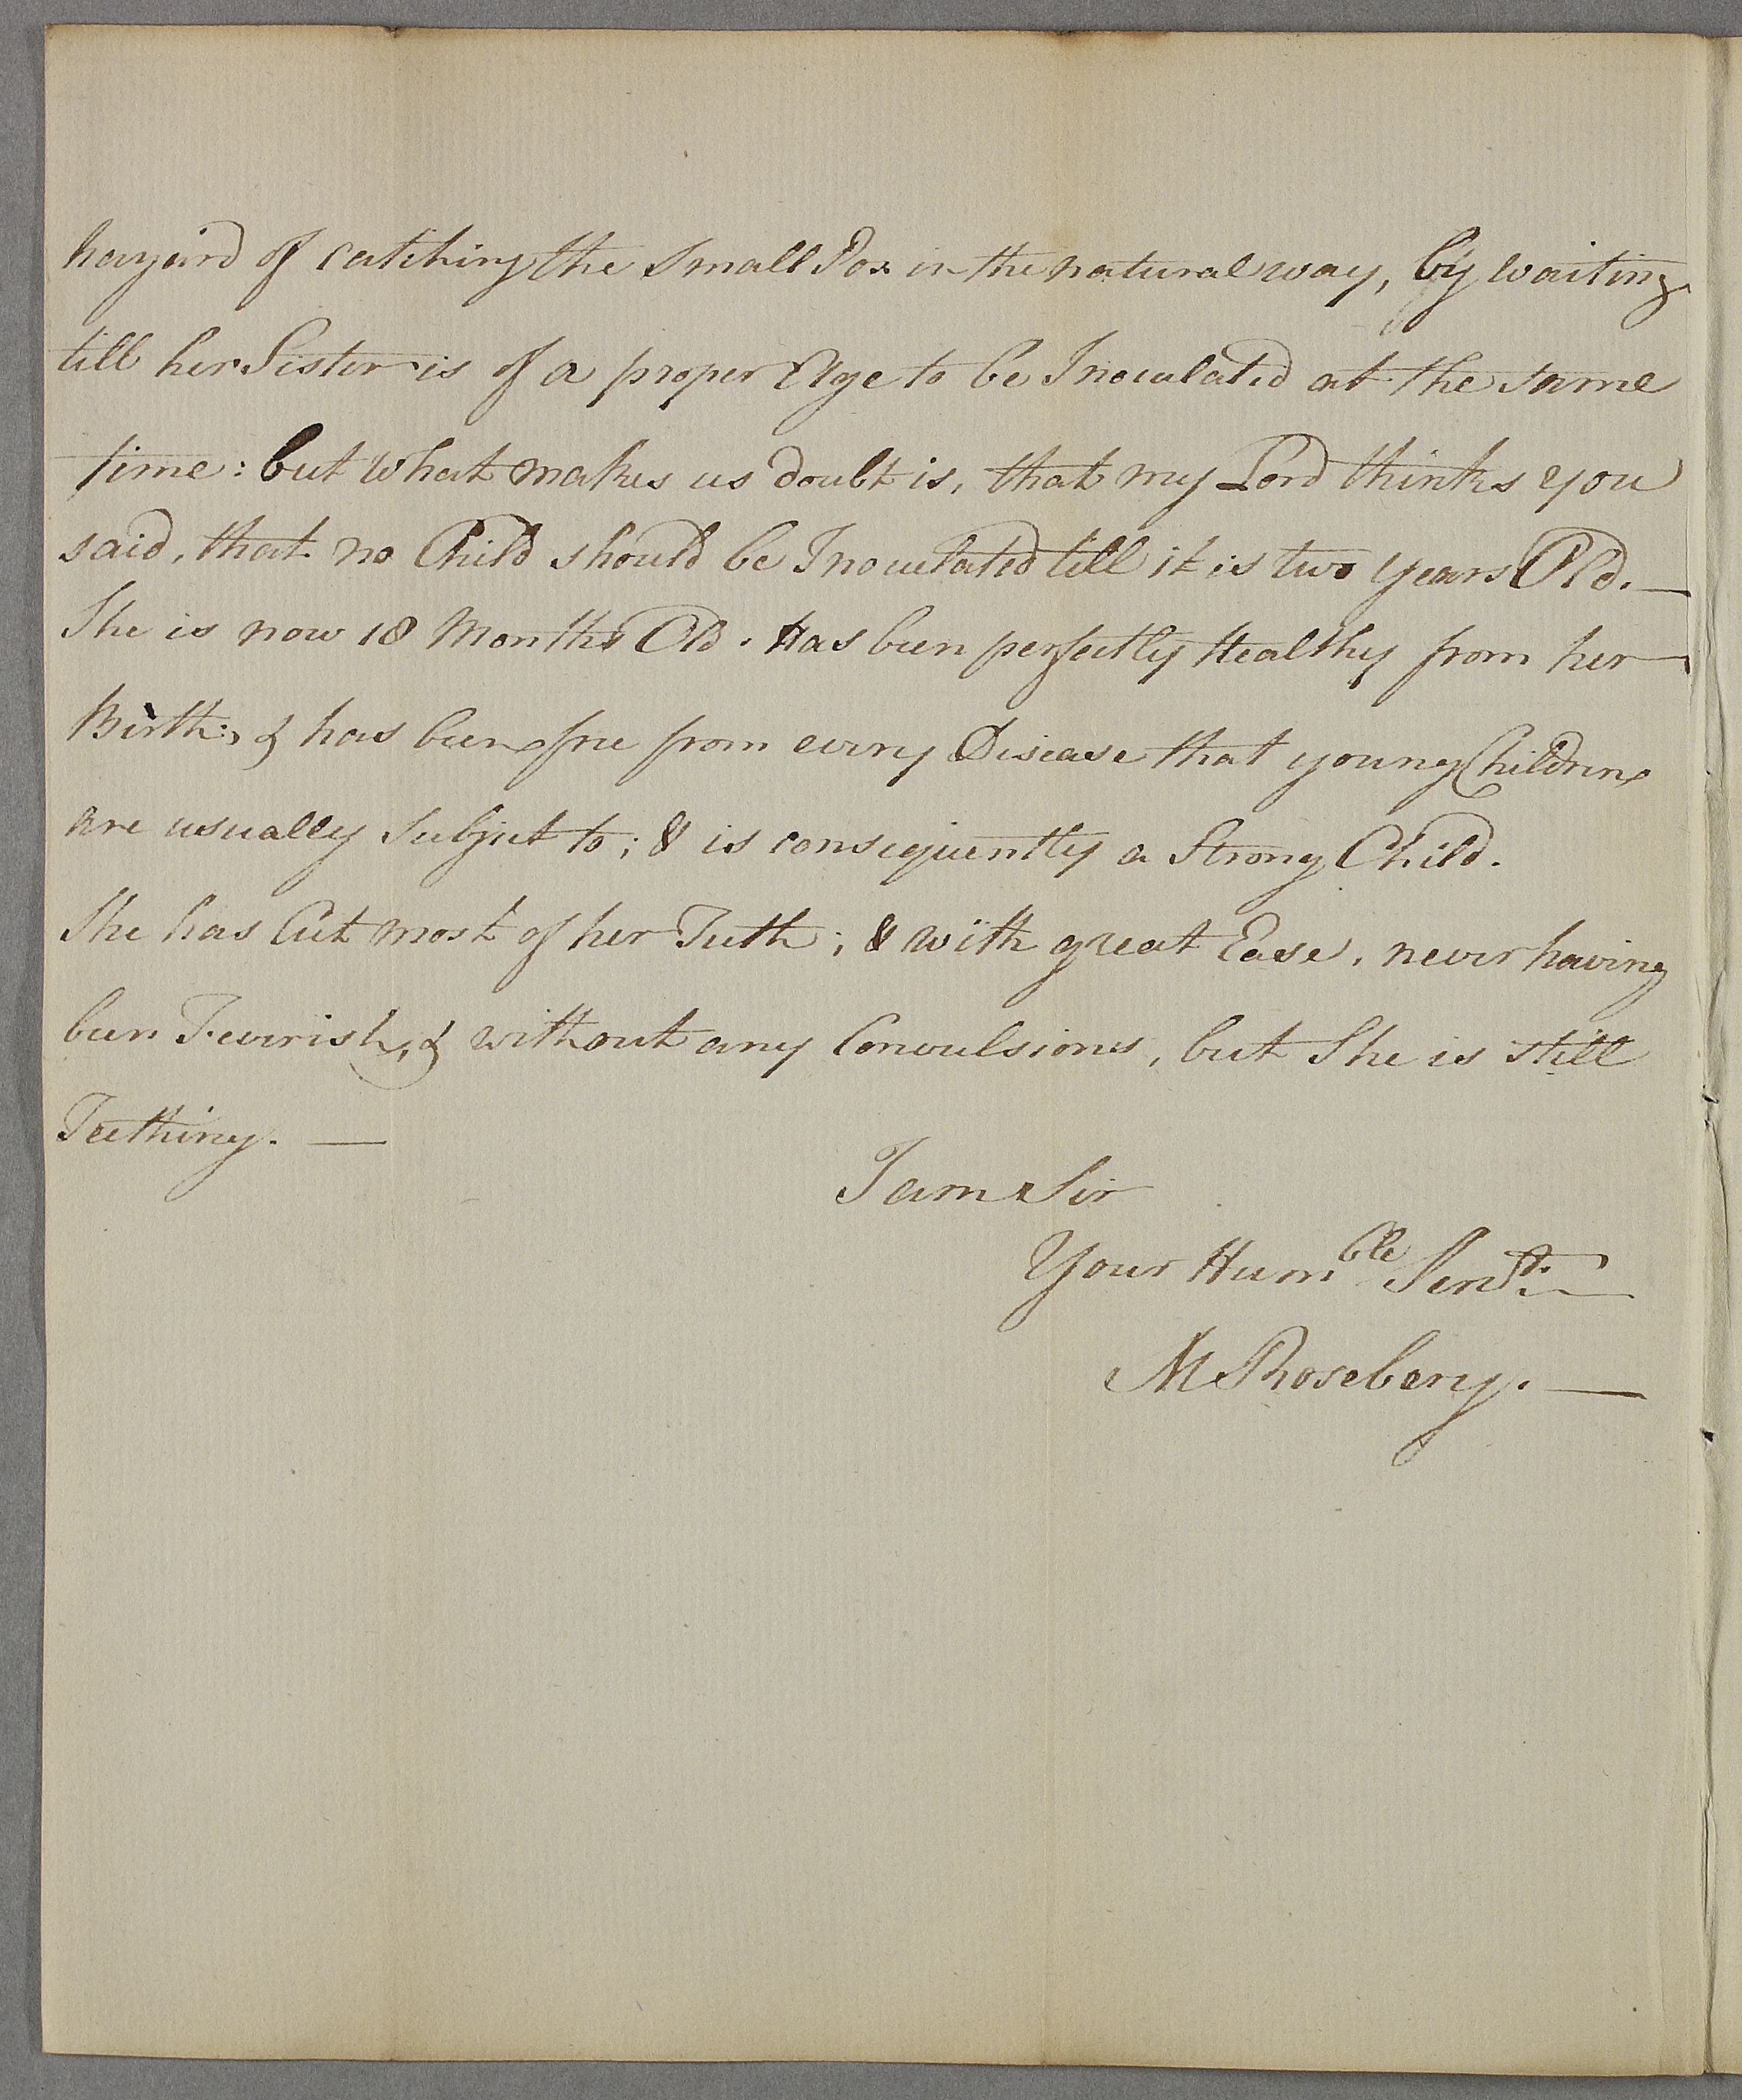 hazard of catching the Small Pox in the natural way, by waiting
till her Sister is of a proper Age to be Inoculated at the same
time: but what makes us doubt is, that my Lord thinks you
said, that no Child should be Inoculated till it is two years Old. —
She is now 18 Months Old. Has been perfectly Healthy from her
Birth, & has been free from every Disease that young Children
are usually Subject to; & is consequently a Strong Child.
She has Cut most of her Teeth; & with great Ease, never having
been Feverish, & without any Convulsions, but She is still
Teething. —
I am Sir
Your Humble Servt. —
M Rosebery. —